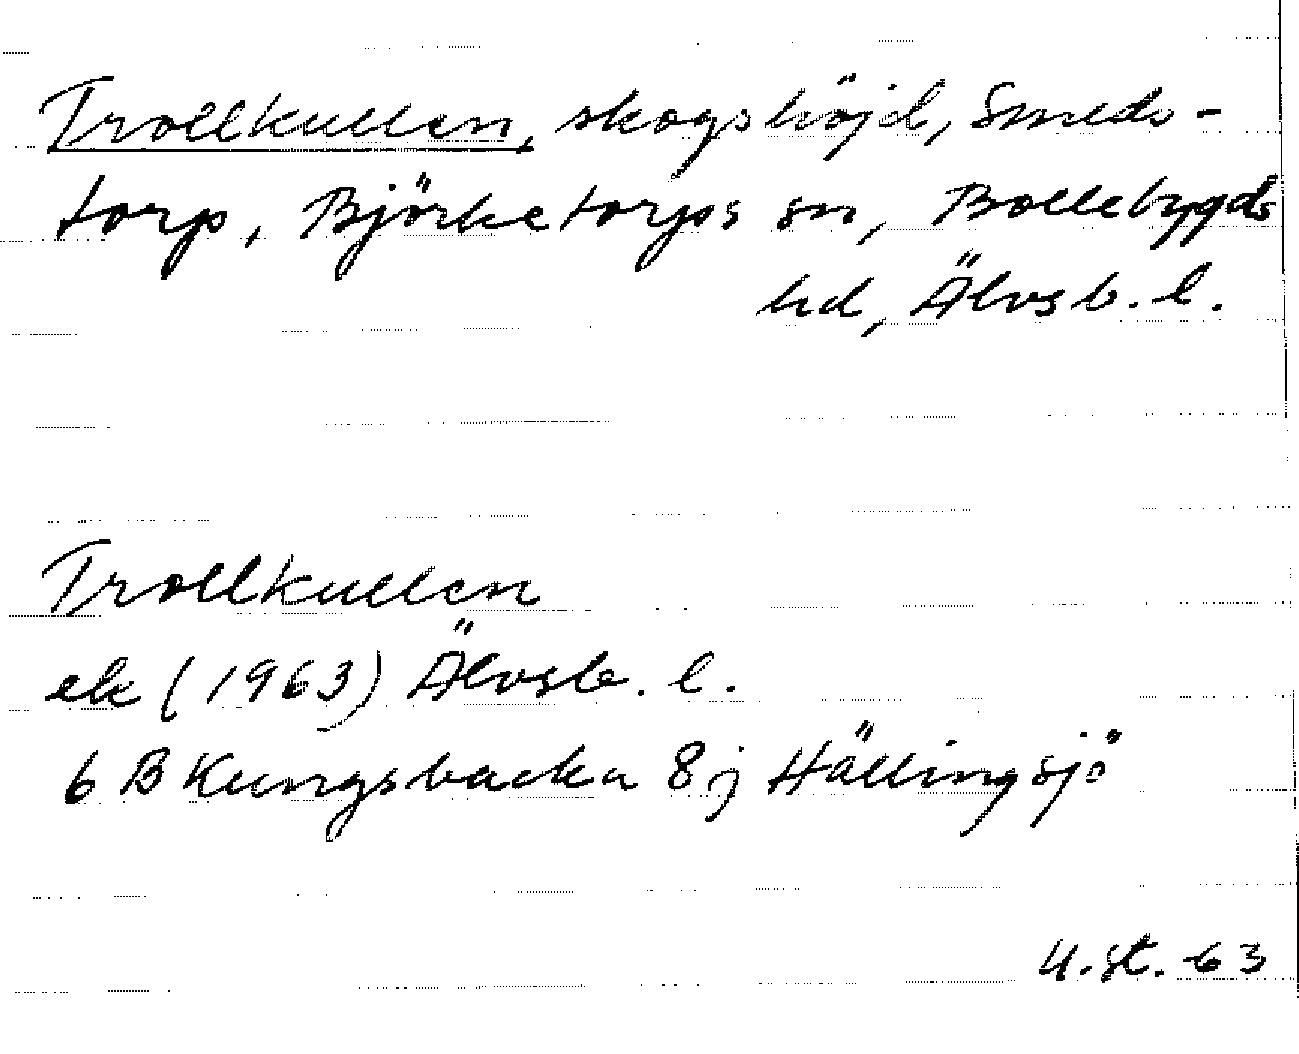 Trollkullen, skogshöjd, Smeds-
torp, Björketorps sn, Bollebygds
hd, Älvsb. l.
Trollkullen
ek (1963) Älvsb. l.
6 B Kungsbacka 8 j Hällingsjö
U. st. 63